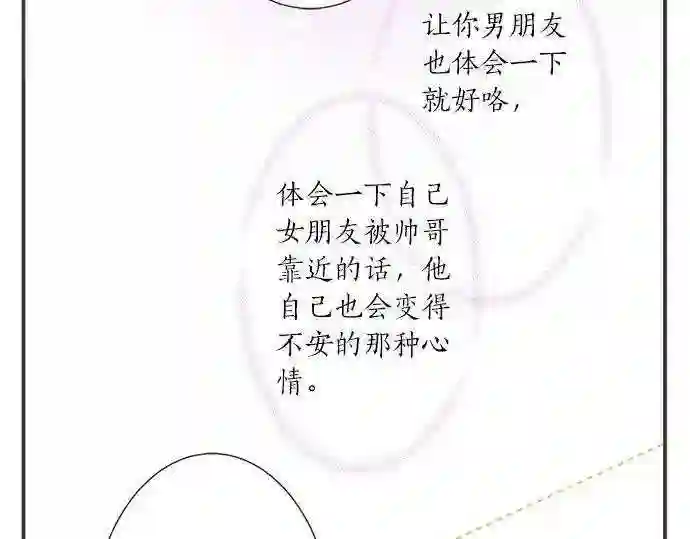 让你男朋友
也体会一下
就好咯，
体会一下自己
女朋友被帅哥
靠近的话，他
自己也会变得
不安的那种心
情。